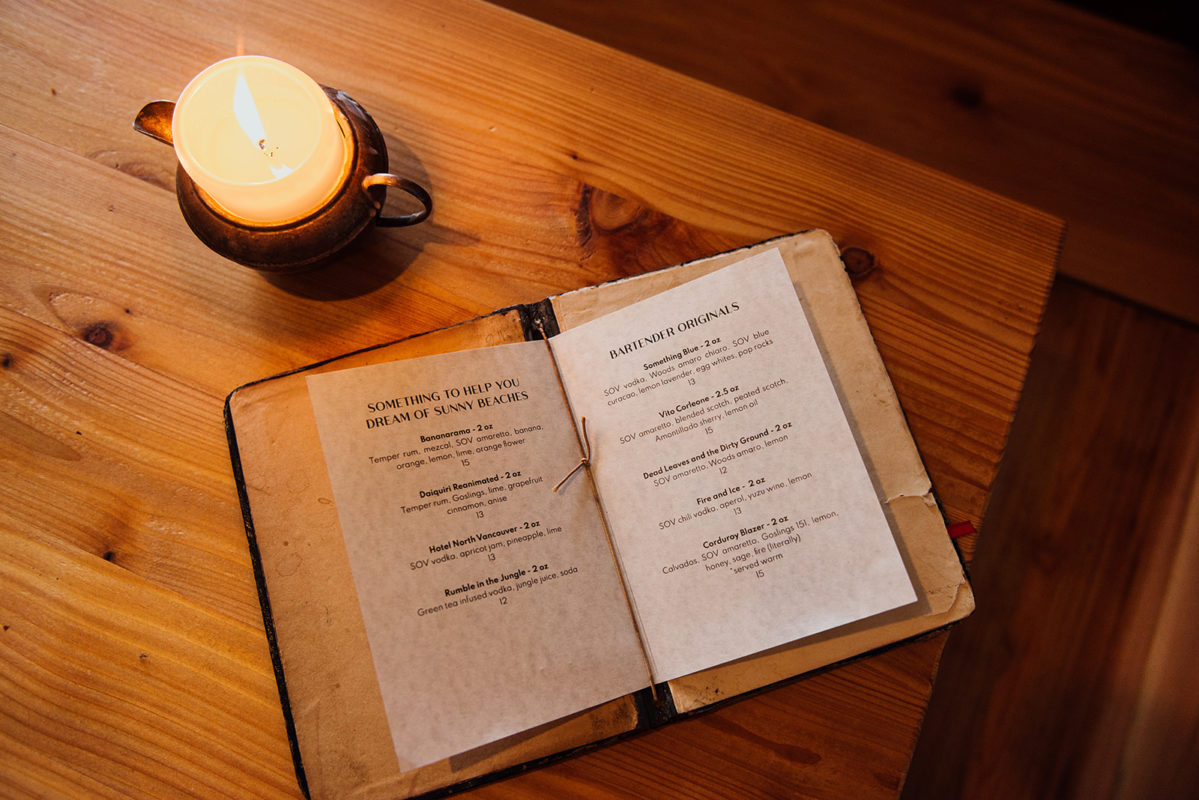 SOMETHING TO HELP YOU
DREAM OF SUNNY BEACHES
Bananarama - 2 oz
Temper rum, mezcal, SOV amaretto, banana,
orange, lemon, lime, orange flower
15
Daiquiri Reanimated - 2 oz
Temper rum, Goslings, lime, grapefruit
cinnamon, anise
13
Hotel North Vancouver - 2 oz
SOV vodka, apricot jam, pineapple, lime
13
Rumble in the Jungle - 2 oz
Green tea infused vodka, jungle juice, soda
12
BARTENDER ORIGINALS
Something Blue - 2 oz
SOV vodka, Woods amaro chiaro, SOV blue
curacao, lemon lavender, egg whites, pop rocks
13
Vito Corleone - 2.5 oz
SOV amaretto, blended scotch, peated scotch,
Amontillado sherry, lemon oil
15
Dead Leaves and the Dirty Ground - 2 oz
SOV amaretto, Woods amaro, lemon
12
Fire and Ice - 2 oz
SOV chili vodka, aperol, yuzu wine, lemon
13
Corduroy Blazer - 2 oz
Calvados, SOV amaretto, Goslings 151, lemon,
honey, sage, fire (literally)
*served warm
15